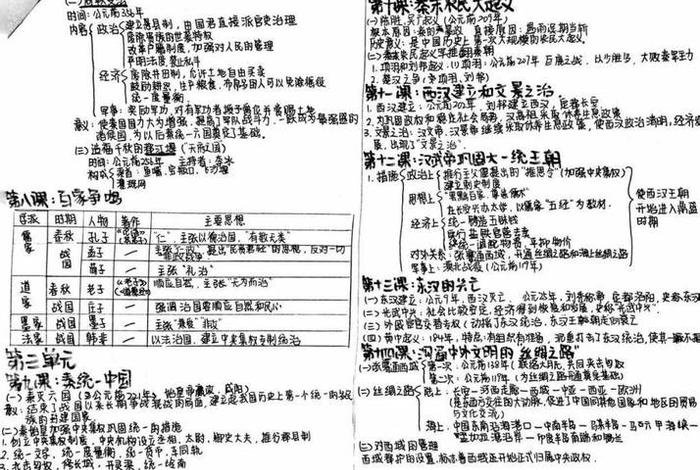 时间：公元前356年
内容 政治 建立县制，由国君直接派官吏治理
废除贵族的世袭特权
改革户籍制度，加强对人民的管理
严明法度，禁止私斗
经济 废除井田制，允许土地自由买卖
鼓励耕织，生产粮食、布帛多的人可以免除徭役
统一度量衡
军事：奖励军功，对有军功者授予爵位并赏赐土地
意义：使秦国国力大为增强，提高了军队战斗力，一跃成为最强盛的
诸侯国，为以后秦统一六国奠定了基础。
(三)造福千秋的都江堰（天府之国）
时间：公元前256年 主持者：李冰
构成：鱼嘴、宝瓶口、飞沙堰
灌溉网
第八课：百家争鸣
学派 时期 人物 著作 主要思想
儒家 春秋 孔子 《论语》 "仁" 主张以德治国，"有教无类"
战国 孟子 — 反对一切
荀子 — 主张"礼治"
道家 春秋 老子 《老子》 顺应自然，主张"无为而治"
战国 庄子 — 强调治国要顺应自然和民心
墨家 战国 墨子 — 主张"兼爱""非攻"
法家 战国 韩非 — 以法治国，建立中央集权专制统治
第三单元
第九课：秦统一中国
(一)秦灭六国（公元前221年，咸阳）
结束了战国以来长期争战的局面，建立起我国历史上第一个统一的多民
族的封建国家
(二)秦始皇加强中央集权巩固统一的措施
1.创立中央集权制度，中央机构设立丞相、太尉、御史大夫，推行郡县制
2.统一文字、统一度量衡、统一货币、车同轨
3.北击匈奴，修长城，开灵渠，统一岭南
第十课：秦末农民大起义
(一)陈胜、吴广起义（公元前209年）
根本原因：秦的暴政 直接原因：遇雨误期当斩
历史意义：是中国历史上第一次大规模的农民大起义
1.项羽和刘邦起义：(1)项羽：公元前207年 巨鹿之战，以少胜多，大败秦军主
力
2.楚汉之争（争项羽、刘邦）
第十一课：西汉建立和文景之治
1.西汉建立：公元前202年，刘邦建立西汉，定都长安
2.为巩固政权和稳定社会局势，汉高祖采取休养生息政策
3.文景之治：汉文帝、汉景帝继续采取休养生息政策，使西汉政治清明，经济发
展，出现了"文景之治"。
第十二课：汉武帝巩固大一统王朝
1.措施 政治上 推行主父偃提出的"推恩令"（加强中央集权）
建立刺史制度
思想上 "罢黜百家，尊崇儒术"
在长安兴办太学，以儒家"五经"为教材。
经济上 统一铸造五铢钱
实行盐铁官营专卖
统一调配物资，平抑物价
对外关系：张骞通西域，开通丝绸之路和海上丝绸之路
军事上：漠北战役（公元前119年）
使西汉王朝
开始进入鼎盛
时期
第十三课：东汉的兴亡
(一)东汉建立：公元9年，西汉灭亡，公元25年，刘秀称帝，定都洛阳，史称东汉
(二)光武中兴：社会比较安定，经济得到恢复和发展，史称"光武中兴"。
(三)外戚宦官交替专权（动摇了东汉统治，东汉王朝日趋衰亡）
(四)黄巾起义：184年，特点：有组织有准备，沉重打击了东汉统治
第十四课：沟通中外文明的"丝绸之路"
(一)张骞通西域 第一次：公元前138年（联络大月氏，共同夹击匈奴）
第二次：公元前119年
(二)丝绸之路 陆上：长安—河西走廊—西域—中亚—西亚—欧洲
（是东西方交往的大动脉，促进了中国同其他国家和地区的贸易
与文化交流）
孟加拉湾沿岸—印度半岛南端和斯兰
(三)对西域的管理
西域都护的设置，标志着西域正式开始归属中央政权。